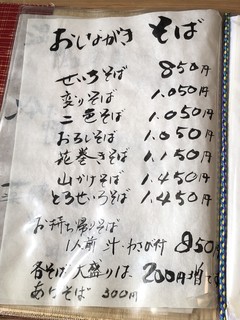 おしながき そば
せいろそば 850円
変りそば 1.050円
二色そば 1.050円
おろしそば 1.050円
花巻きそば 1.150円
山かけそば 1.450円
とろせいろそば 1.450円
お持ち帰りそば
1人前 汁・わさび付 850
各そば大盛りは 200円増
そば 300円